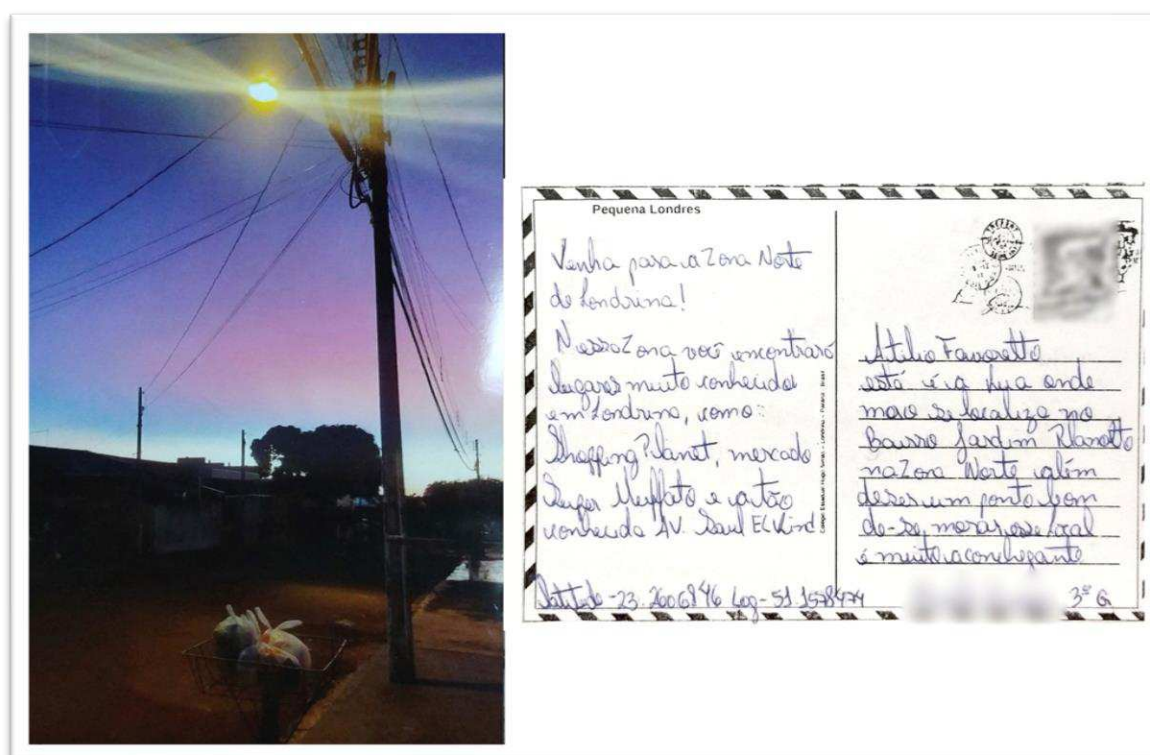 Pequena Londres
Venha para a Zona Norte
de Londrina!
Nessa Zona você encontrará
lugares muito conhecidos
em Londrina, como:
Shopping Planet, mercado
Super Muffato e a tão
conhecida AV. Saul ElKind
Latitude -23.2606846 Log -51 1578474
Colégio Estadual Hugo Simas - Londrina - Paraná - Brasil
Atilio Favoretto
está é a rua onde
moro se localiza no
Bairro Jardim Planalto
na Zona Norte além
de ser um ponto bom
de-se morar esse local
é muito aconchegante
3º G